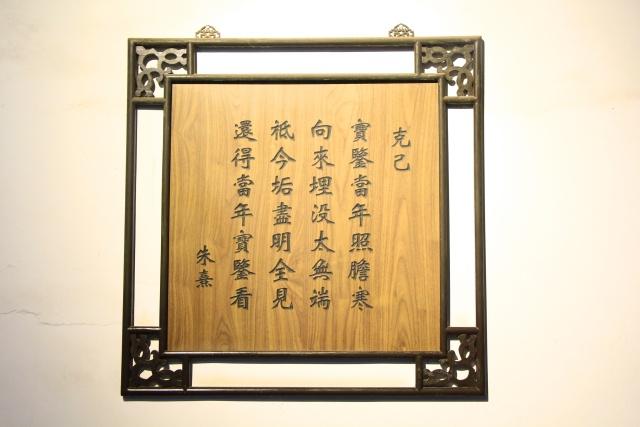 克己
寶鑒當年照膽寒
向來埋没太無端
祇今垢盡明全見
還得當年寶鑒看
朱熹